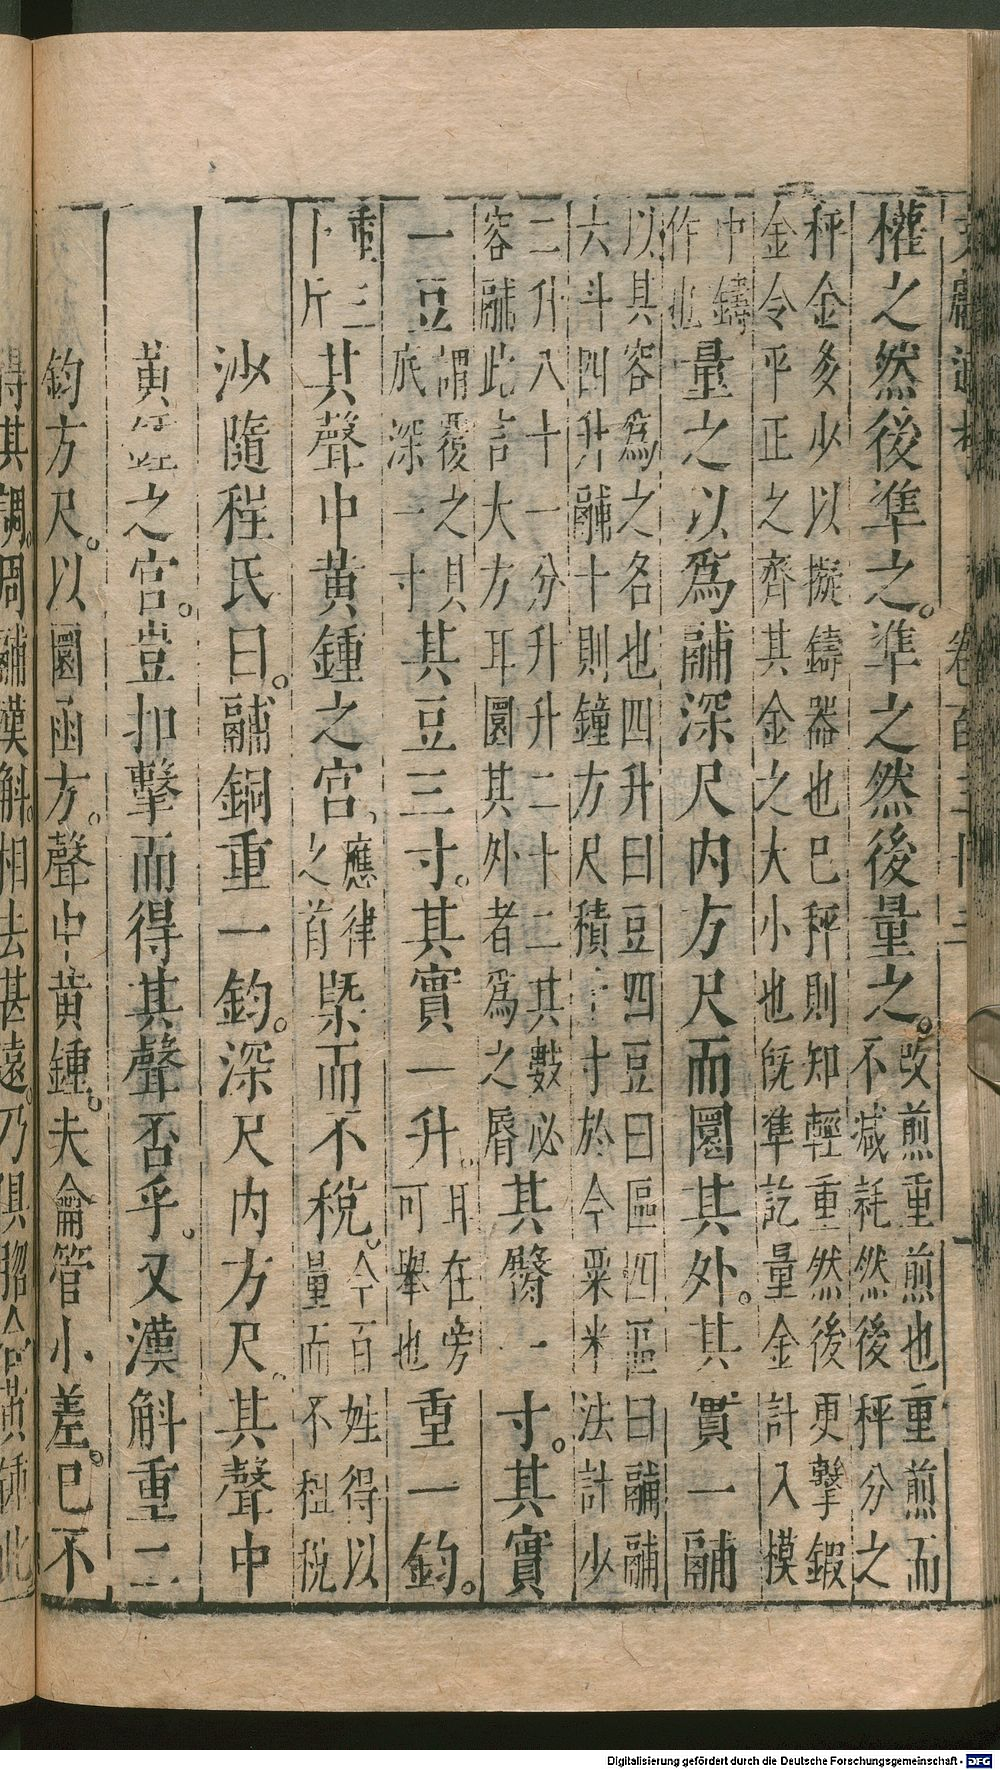 權之然後準之。準之然後量之。改煎重煎也重煎而不減耗然後秤分之
秤金多少以擬鑄器也已秤則知輕重然後更擊鍜金令平正之齊其金之大小也旣準訖量金計入模
中鑄作也量之以爲鬴深尺内方尺而圜其外。其實一鬴
以其容爲之名也四升曰豆四豆曰區四區曰鬴鬴六斗四升鬴十則鐘方尺積寸於今粟米法計少
二升八十一分升升二十二其數必容鬴此言大方耳圜其外者爲之脣其臀一寸。其實
一豆謂覆之其底深一寸其豆三寸。其實一升。耳在旁可舉也重一鈞。
重三斤其聲中黃鍾之宮。應律之首槩而不稅。今百姓得以量而不租稅
沙隨程氏曰。鬴銅重一鈞。深尺内方尺。其聲中
黃之宮。豈扣擊而得其聲否乎。又漢斛重二
鈞方尺。以圜函方。聲中黃鍾。夫龠管小差。已不
得其調。周鬴漢斛。相去甚遠。乃俱脗合黃鍾此
Digitalisierung gefördert durch die Deutsche Forschungsgemeinschaft - DFG